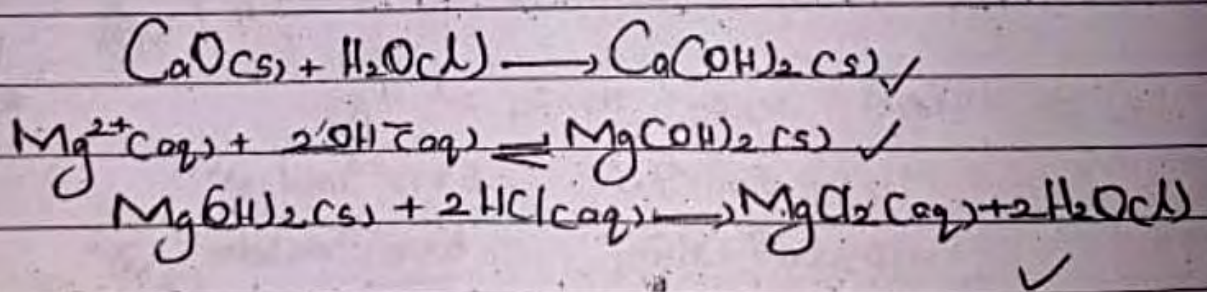 CaO(s) + H₂O(l) ⟶ Ca(OH)₂ (s) ✓
Mg²⁺(aq) + 2OH⁻(aq) ⇌ Mg(OH)₂ (s) ✓
Mg(OH)₂(s) + 2HCl(aq) ⟶ MgCl₂(aq) + 2H₂O(l)
✓